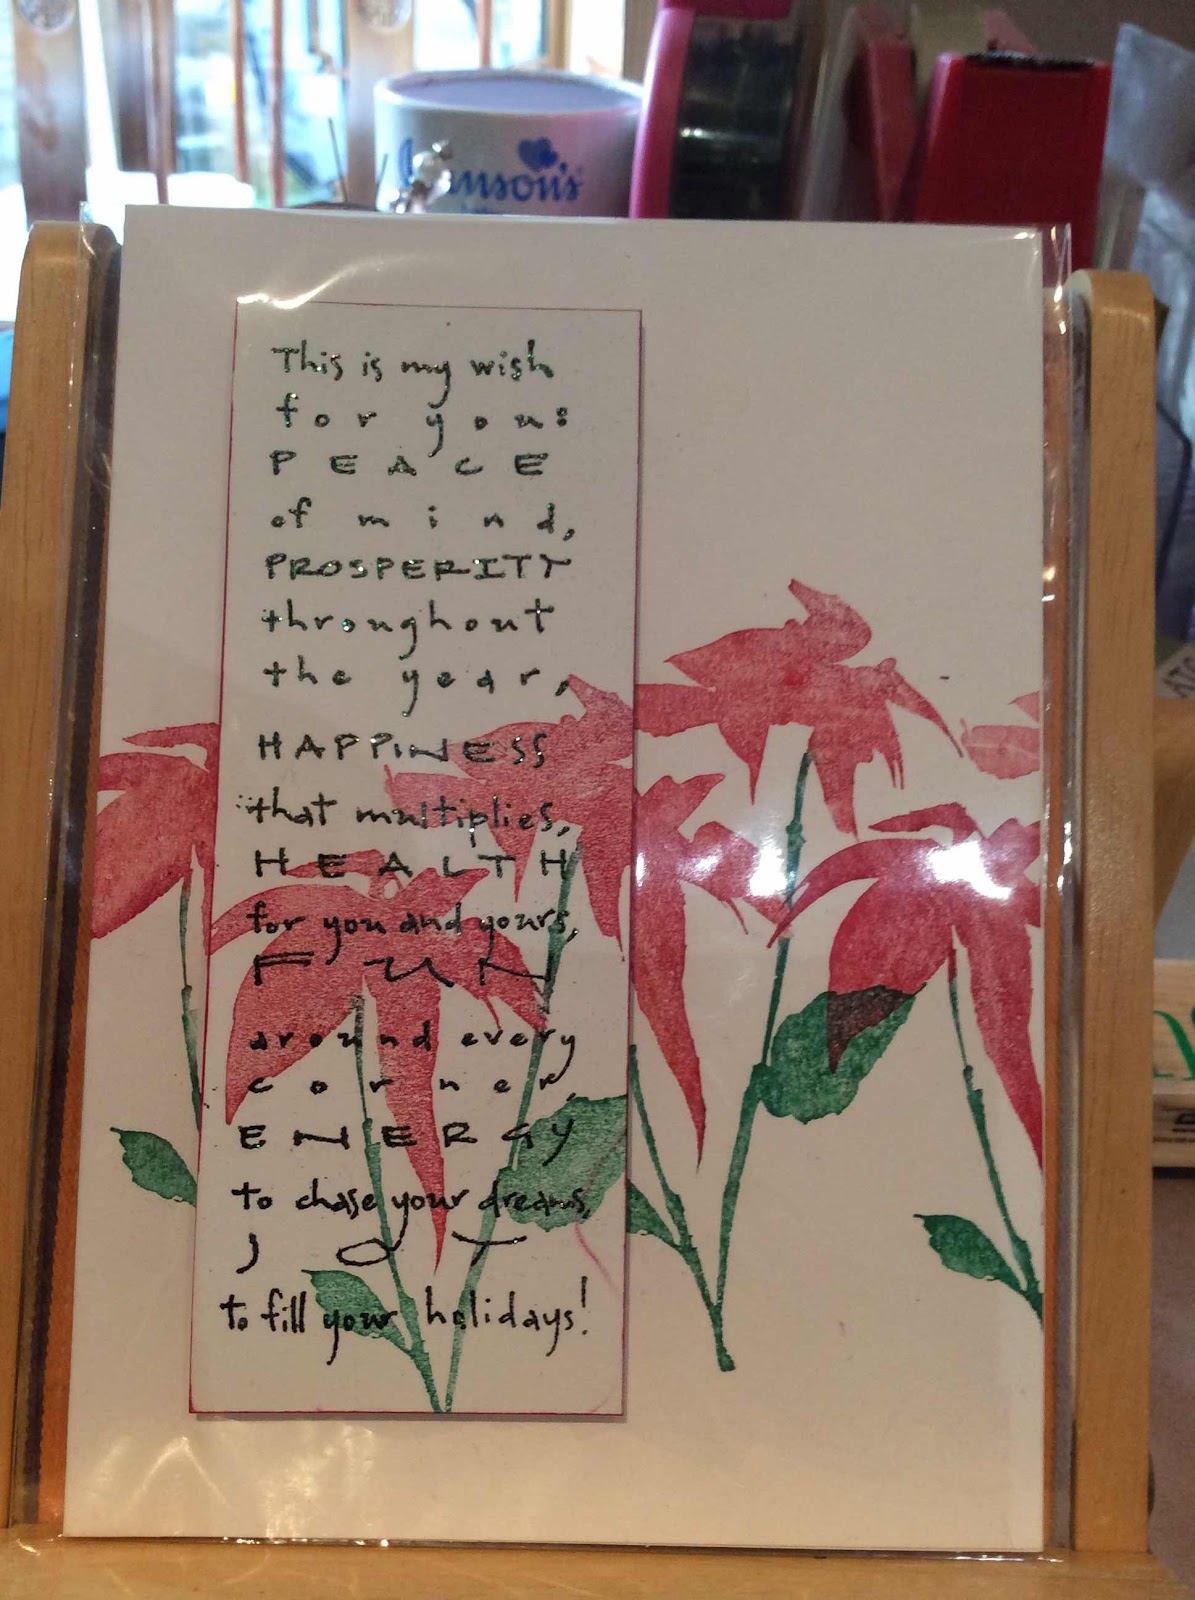 Johnson's
This is my wish
for you:
PEACE
of mind,
PROSPERITY
throughout
the year,
HAPPINESS
that multiplies,
HEALTH
for you and yours,
FUN
around every
corner,
ENERGY
to chase your dreams,
JOY
to fill your holidays!